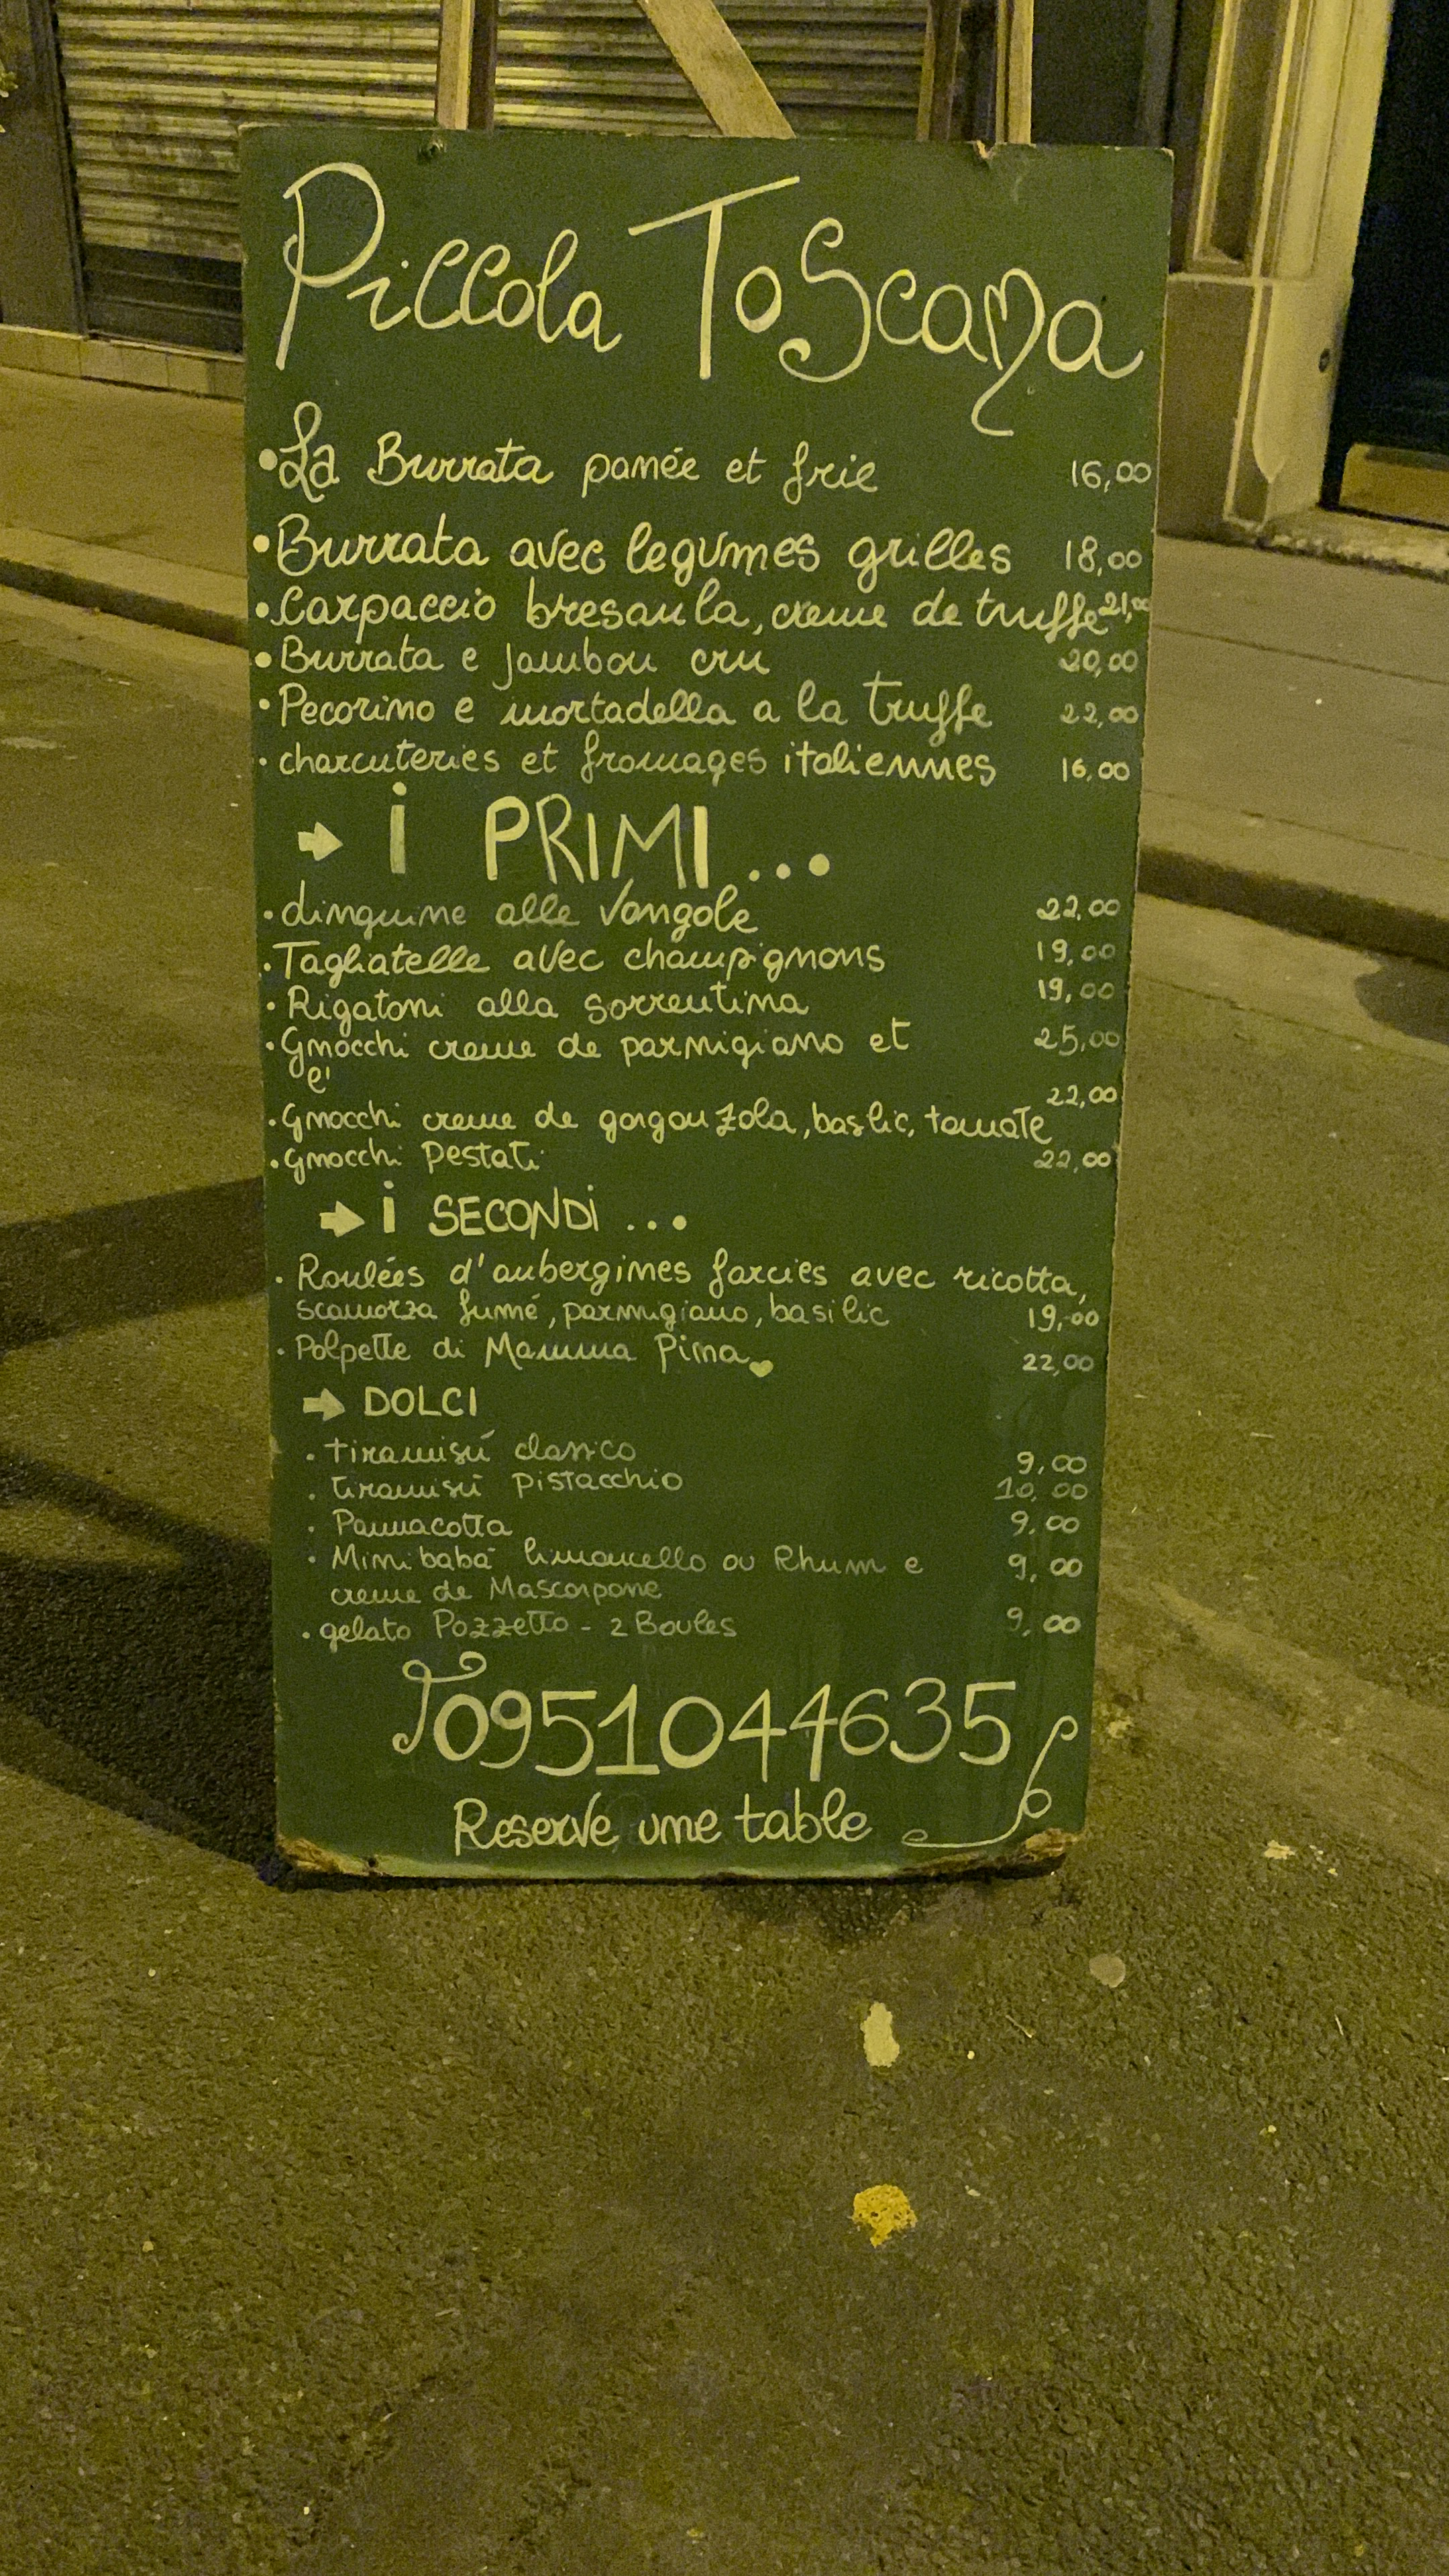 Piccola Toscana
• La Burrata panée et frie 16,00
• Burrata avec legumes grilles 18,00
• Carpaccio bresaula, creme de truffe 21,00
• Burrata e jambon cru 20,00
• Pecorino e mortadella a la truffe 22,00
• charcuteries et fromages italiennes 16,00
➡ i PRIMI...
• Linguine alle Vongole 22,00
• Tagliatelle avec champignons 19,00
• Rigatoni alla sorrentina 19,00
• Gnocchi creme de parmigiano et 25,00
e'
• Gnocchi creme de gorgonzola, baslic, tomate 22,00
• Gnocchi Pestati 22,00
➡ i SECONDi...
• Roulées d'aubergines farcies avec ricotta,
scamorza fumé, parmigiano, basilic 19,00
• Polpette di Mamma Pina 22,00
➡ DOLCI
• tiramisú classico 9,00
• tiramisú Pistacchio 10,00
• Pannacotta 9,00
• Mini babà limoncello ou Rhum e 9,00
creme de Mascarpone
• gelato Pozzetto - 2 Boules 9,00
0951044635
Reserve une table